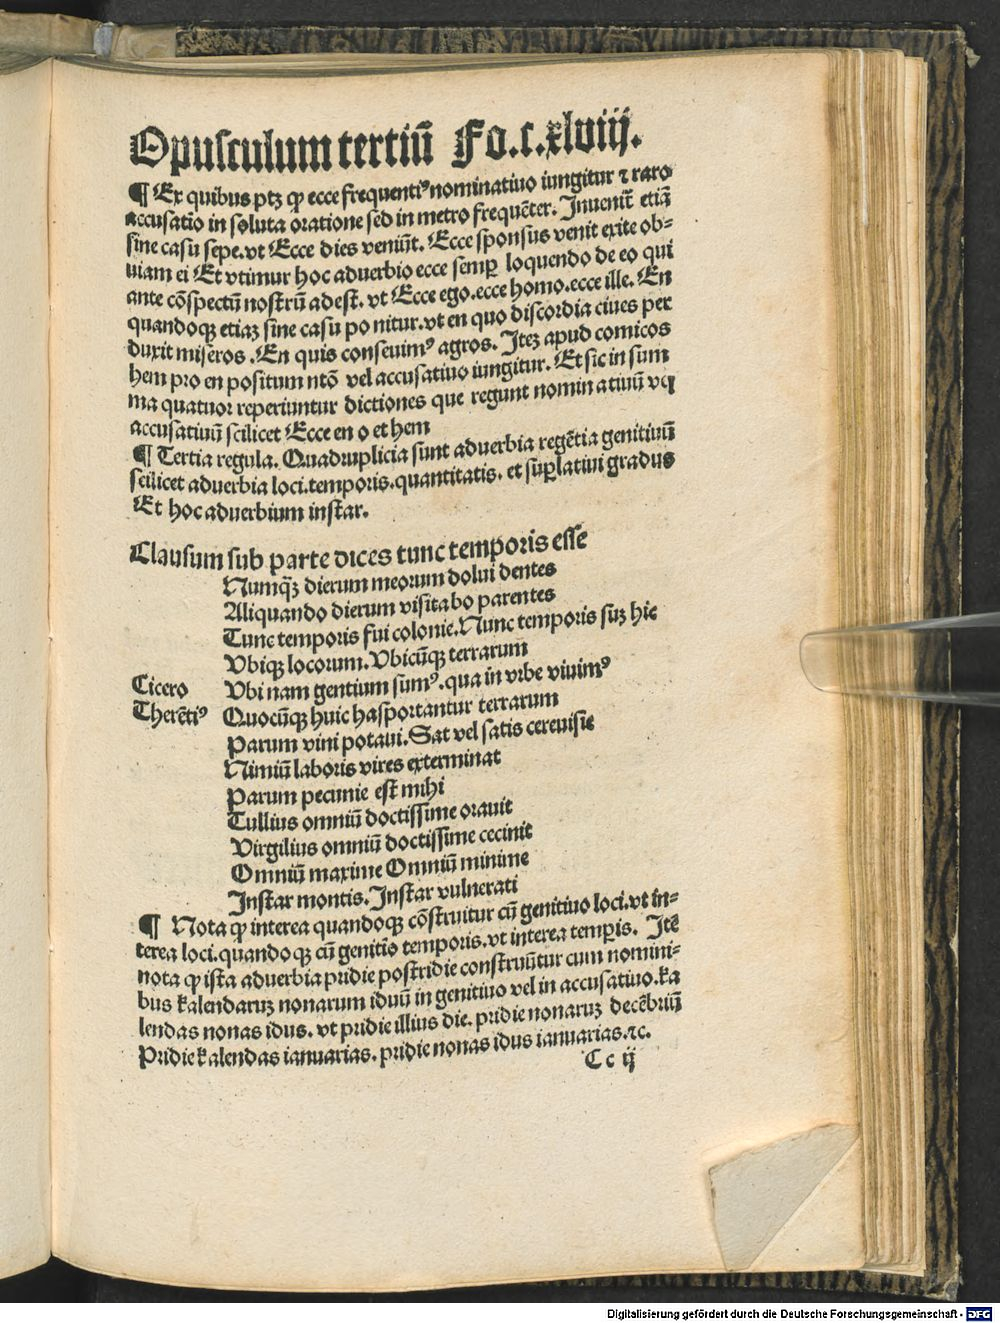 Opusculum tertiū Fo.c.xlviij.
¶ Ex quibus ptꝫ ꝙ ecce frequentiꝰ nominatiuo iungitur ⁊ raro
accusatio in soluta oratione sed in metro frequēter. Inuenit̄ etiā
sine casu sepe.vt Ecce dies veniūt. Ecce sponsus venit exite ob⸗
uiam ei Et vtimur hoc aduerbio ecce semꝑ loquendo de eo qui
ante cōspectū nostrū adest. vt Ecce ego.ecce homo.ecce ille. En
quandoqꝫ etiaꝫ sine casu po nitur.vt en quo discordia ciues per
duxit miseros .En quis conseuimꝰ agros. Iteꝫ apud comicos
hem pro en positum ntō vel accusatiuo iungitur. Et sic in sum
ma quatuor reperiuntur dictiones que regunt nomin atiuū vel
accusatiuū scilicet Ecce en o et hem
¶ Tertia regula. Quadruplicia sunt aduerbia regētia genitiuū
scilicet aduerbia loci.temporis.quantitatis. et suꝑlatiui gradus
Et hoc aduerbium instar.
Clausum sub parte dices tunc temporis esse
Numqꝫ̄ dierum meorum dolui dentes
Aliquando dierum visitabo parentes
Tunc temporis fui colonie.Nunc temporis suꝫ hic
Vbiqꝫ locorum.Vbicūqꝫ terrarum
Cicero Vbi nam gentium sumꝰ.qua in vrbe viuimꝰ
Therētiꝰ Quocūqꝫ huic hasportantur terrarum
Parum vini potaui.Sat vel satis cereuisie
Nimiū laboris vires exterminat
Parum pecunie est mihi
Tullius omniū doctissime orauit
Virgilius omniū doctissime cecinit
Omniū maxime Omniū minime
Instar montis.Instar vulnerati
¶ Nota ꝙ interea quandoqꝫ cōstruitur cū genitiuo loci.vt in⸗
terea loci.quando qꝫ cū genitio temporis.vt interea temꝑis. Itē
nota ꝙ ista aduerbia pridie postridie construūtur cum nomini⸗
bus kalendaruꝫ nonarum iduū in genitiuo vel in accusatiuo.ka
lendas nonas idus. vt pridie illius die. pridie nonaruꝫ decēbriū
Pridie kalendas ianuarias. pridie nonas idus ianuarias.⁊c.
Cc ij
Digitalisierung gefördert durch die Deutsche Forschungsgemeinschaft - DFG